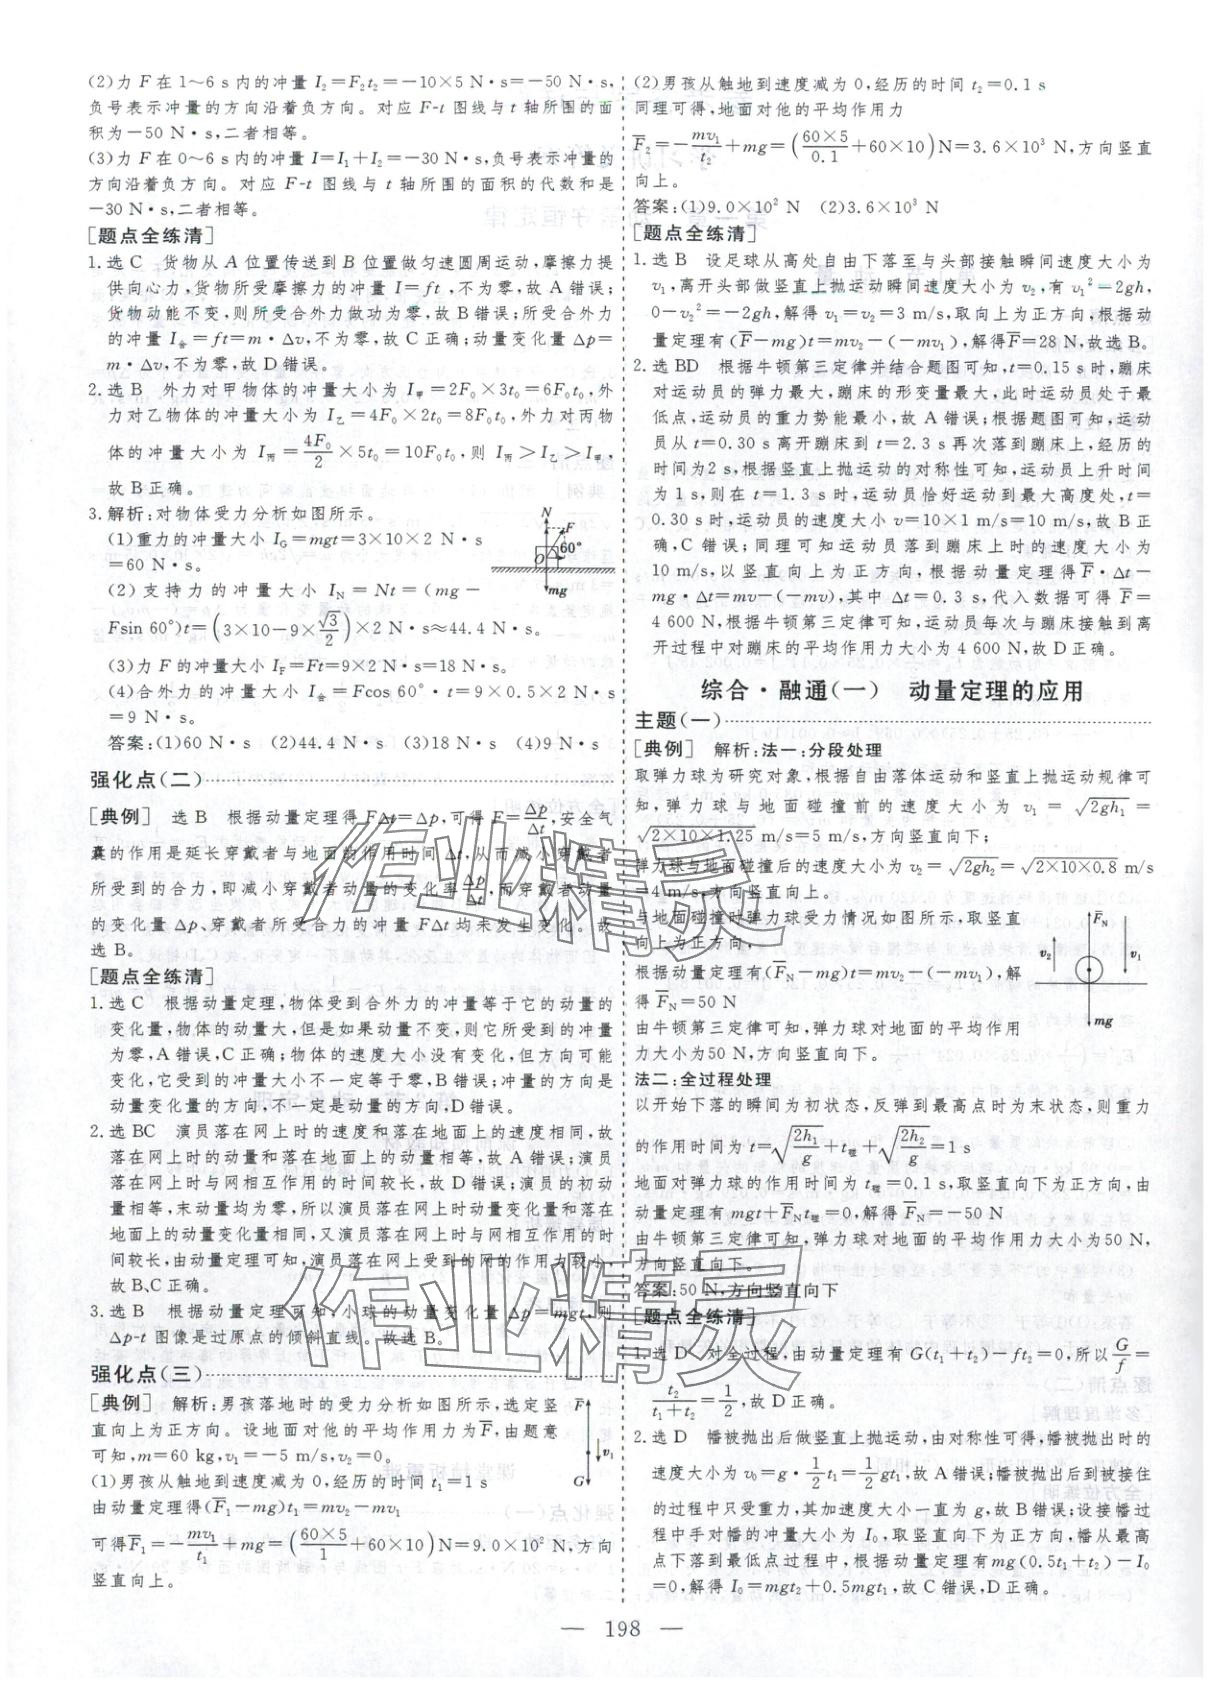 (2)力 F 在 1～6 s 内的冲量 I₂=F₂t₂=－10×5 N·s=－50 N·s,
负号表示冲量的方向沿着负方向。对应 F-t 图线与 t 轴所围的面
积为－50 N·s,二者相等。
(3)力 F 在 0～6 s 内的冲量 I=I₁+I₂=－30 N·s,负号表示冲量的
方向沿着负方向。对应 F-t 图线与 t 轴所围的面积的代数和是
－30 N·s,二者相等。
[题点全练清]
1. 选 C　货物从 A 位置传送到 B 位置做匀速圆周运动,摩擦力提
供向心力,货物所受摩擦力的冲量 I=ft,不为零,故 A 错误;
货物动能不变,则所受合外力做功为零,故 B 错误;所受合外力
的冲量 I合=ft=m·Δv,不为零,故 C 正确;动量变化量 Δp=
m·Δv,不为零,故 D 错误。
2. 选 B　外力对甲物体的冲量大小为 I甲=2F₀×3t₀=6F₀t₀,外
力对乙物体的冲量大小为 I乙=4F₀×2t₀=8F₀t₀,外力对丙物
体的冲量大小为 I丙=4F₀/2×5t₀=10F₀t₀,则 I丙>I乙>I甲,
故 B 正确。
3. 解析:对物体受力分析如图所示。
N
F
O
60°
mg
(1)重力的冲量大小 I_G=mgt=3×10×2 N·s
=60 N·s。
(2)支持力的冲量大小 I_N=Nt=(mg－
Fsin 60°)t=(3×10－9×√3/2)×2 N·s≈44.4 N·s。
(3)力 F 的冲量大小 I_F=Ft=9×2 N·s=18 N·s。
(4)合外力的冲量大小 I合=Fcos 60°·t=9×0.5×2 N·s
=9 N·s。
答案:(1)60 N·s　(2)44.4 N·s　(3)18 N·s　(4)9 N·s
强化点(二)
[典例]　选 B　根据动量定理得 FΔt=Δp,可得 F=Δp/Δt,安全气
囊的作用是延长穿戴者与地面的作用时间 Δt,从而减小穿戴者
所受到的合力,即减小穿戴者动量的变化率 Δp/Δt,而穿戴者动量
的变化量 Δp、穿戴者所受合力的冲量 FΔt 均未发生变化。故
选 B。
[题点全练清]
1. 选 C　根据动量定理,物体受到合外力的冲量等于它的动量的
变化量,物体的动量大,但是如果动量不变,则它所受到的冲量
为零,A 错误,C 正确;物体的速度大小没有变化,但方向可能
变化,它受到的冲量大小不一定等于零,B 错误;冲量的方向是
动量变化量的方向,不一定是动量的方向,D 错误。
2. 选 BC　演员落在网上时的速度和落在地面上的速度相同,故
落在网上时的动量和落在地面上时的动量相等,故 A 错误;演员
落在网上时与网相互作用的时间较长,故 D 错误;演员的初动
量相等,末动量均为零,所以演员落在网上时动量变化量和落在
地面上的动量变化量相同,又演员落在网上时与网相互作用的时
间较长,由动量定理可知,演员落在网上受到的网的作用力较小,
故 B、C 正确。
3. 选 B　根据动量定理可知,小球的动量变化量 Δp=mgt,则
Δp-t 图像是过原点的倾斜直线。故选 B。
强化点(三)
[典例]　解析:男孩落地时的受力分析如图所示,选定竖
直向上为正方向。设地面对他的平均作用力为F̅,由题意
可知,m=60 kg,v₁=－5 m/s,v₂=0。
F̅
v₁
G
(1)男孩从触地到速度减为 0,经历的时间 t₁=1 s
由动量定理得(F̅₁－mg)t₁=mv₂－mv₁
可得F̅₁=－mv₁/t₁+mg=(60×5/1+60×10)N=9.0×10² N,方向
竖直向上。
(2)男孩从触地到速度减为 0,经历的时间 t₂=0.1 s
同理可得,地面对他的平均作用力
F̅₂=－mv₁/t₂+mg=(60×5/0.1+60×10)N=3.6×10³ N,方向竖直
向上。
答案:(1)9.0×10² N　(2)3.6×10³ N
[题点全练清]
1. 选 B　设足球从高处自由下落至与头部接触瞬间速度大小为
v₁,离开头部做竖直上抛运动瞬间速度大小为 v₂,有 v₁²=2gh,
0－v₂²=－2gh,解得 v₁=v₂=3 m/s,取向上为正方向,根据动
量定理有(F̅－mg)t=mv₂－(－mv₁),解得F̅=28 N,故选 B。
2. 选 BD　根据牛顿第三定律并结合题图可知,t=0.15 s 时,蹦床
对运动员的弹力最大,蹦床的形变量最大,此时运动员处于最
低点,运动员的重力势能最小,故 A 错误;根据题图可知,运动
员从 t=0.30 s 离开蹦床到 t=2.3 s 再次落到蹦床上,经历的
时间为 2 s,根据竖直上抛运动的对称性可知,运动员上升时间
为 1 s,则在 t=1.3 s 时,运动员恰好运动到最大高度处,t=
0.30 s 时,运动员的速度大小 v=10×1 m/s=10 m/s,故 B 正
确,C 错误;同理可知运动员落到蹦床上时的速度大小为
10 m/s,以竖直向上为正方向,根据动量定理得F̅·Δt－
mg·Δt=mv－(－mv),其中 Δt=0.3 s,代入数据可得 F̅=
4 600 N,根据牛顿第三定律可知,运动员每次与蹦床接触到离
开过程中对蹦床的平均作用力大小为 4 600 N,故 D 正确。
综合·融通(一)　动量定理的应用
主题(一)
[典例]　解析:法一:分段处理
取弹力球为研究对象,根据自由落体运动和竖直上抛运动规律可
知,弹力球与地面碰撞前的速度大小为 v₁=√(2gh₁)=
√(2×10×1.25) m/s=5 m/s,方向竖直向下;
弹力球与地面碰撞后的速度大小为 v₂=√(2gh₂)=√(2×10×0.8) m/s
=4 m/s,方向竖直向上。
与地面碰撞时弹力球受力情况如图所示,取竖直
向上为正方向,
根据动量定理有(F̅_N－mg)t=mv₂－(－mv₁),解
得 F̅_N=50 N
F̅_N
v₂
v₁
mg
由牛顿第三定律可知,弹力球对地面的平均作用
力大小为 50 N,方向竖直向下。
法二:全过程处理
以开始下落的瞬间为初状态,反弹到最高点时为末状态,则重力
的作用时间为 t=√(2h₁/g)+t碰+√(2h₂/g)=1 s
地面对弹力球的作用时间为 t碰=0.1 s,取竖直向下为正方向,由
动量定理有 mgt+F̅_N t碰=0,解得 F̅_N=－50 N
由牛顿第三定律可知,弹力球对地面的平均作用力大小为 50 N,
方向竖直向下。
答案:50 N,方向竖直向下
[题点全练清]
1. 选 D　对全过程,由动量定理有 G(t₁+t₂)－ft₂=0,所以 G/f=
t₂/(t₁+t₂)=1/2,故 D 正确。
2. 选 D　幡被抛出后做竖直上抛运动,由对称性可得,幡被抛出时的
速度大小为 v₀=g·1/2 t₁=1/2 gt₁,故 A 错误;幡被抛出后到被接住
的过程中只受重力,其加速度大小一直为 g,故 B 错误;设接幡过
程中手对幡的冲量大小为 I₀,取竖直向下为正方向,幡从最高
点下落到最低点过程中,根据动量定理有 mg(0.5t₁+t₂)－I₀
=0,解得 I₀=mgt₂+0.5mgt₁,故 C 错误,D 正确。
— 198 —
作业精灵
作业精灵